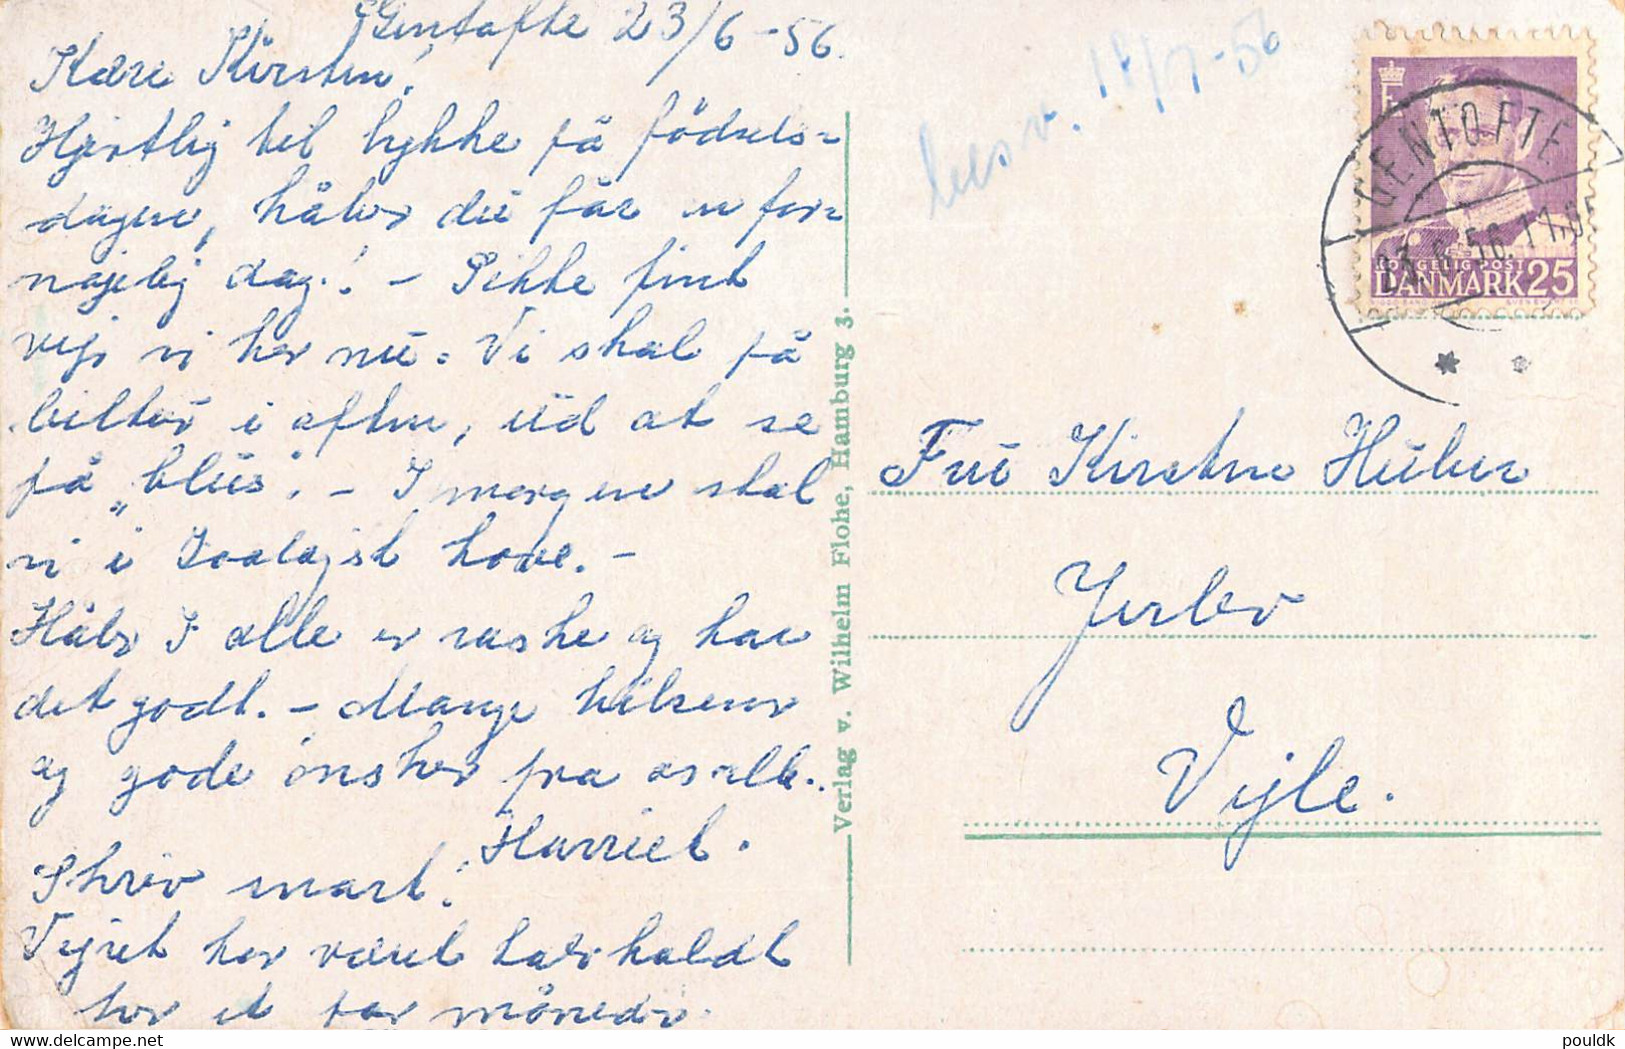 Gentofte 23/6-56.
Kære Kirsten!
Hjertlig til lykke på födsels-
dagen, håber du får en for-
nøjelig dag! - Sikke fint
vejr vi har nu. Vi skal på
biltur i aften, ud at se
på "blus". - I morgen skal
vi i Zoologisk have. -
Håber I alle er raske og har
det godt. - Mange hilsener
og gode önsker fra os alle.
Harriet.
Skriv snart!
Vejret har været
for et par måneder.
besv. 17/7-56
GENTOFTE
23.6.56.11.
KONGELIG POST
DANMARK 25
Fru Kirsten Huber
Jerlev
Vejle.
Verlag v. Wilhelm Flohe, Hamburg 3.
pouldk